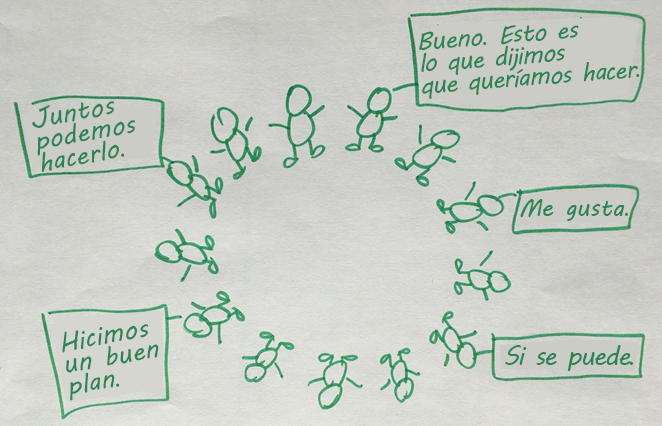 Bueno. Esto es
lo que dijimos
que queríamos hacer.
Juntos
podemos
hacerlo.
Me gusta.
Hicimos
un buen
plan.
Si se puede.